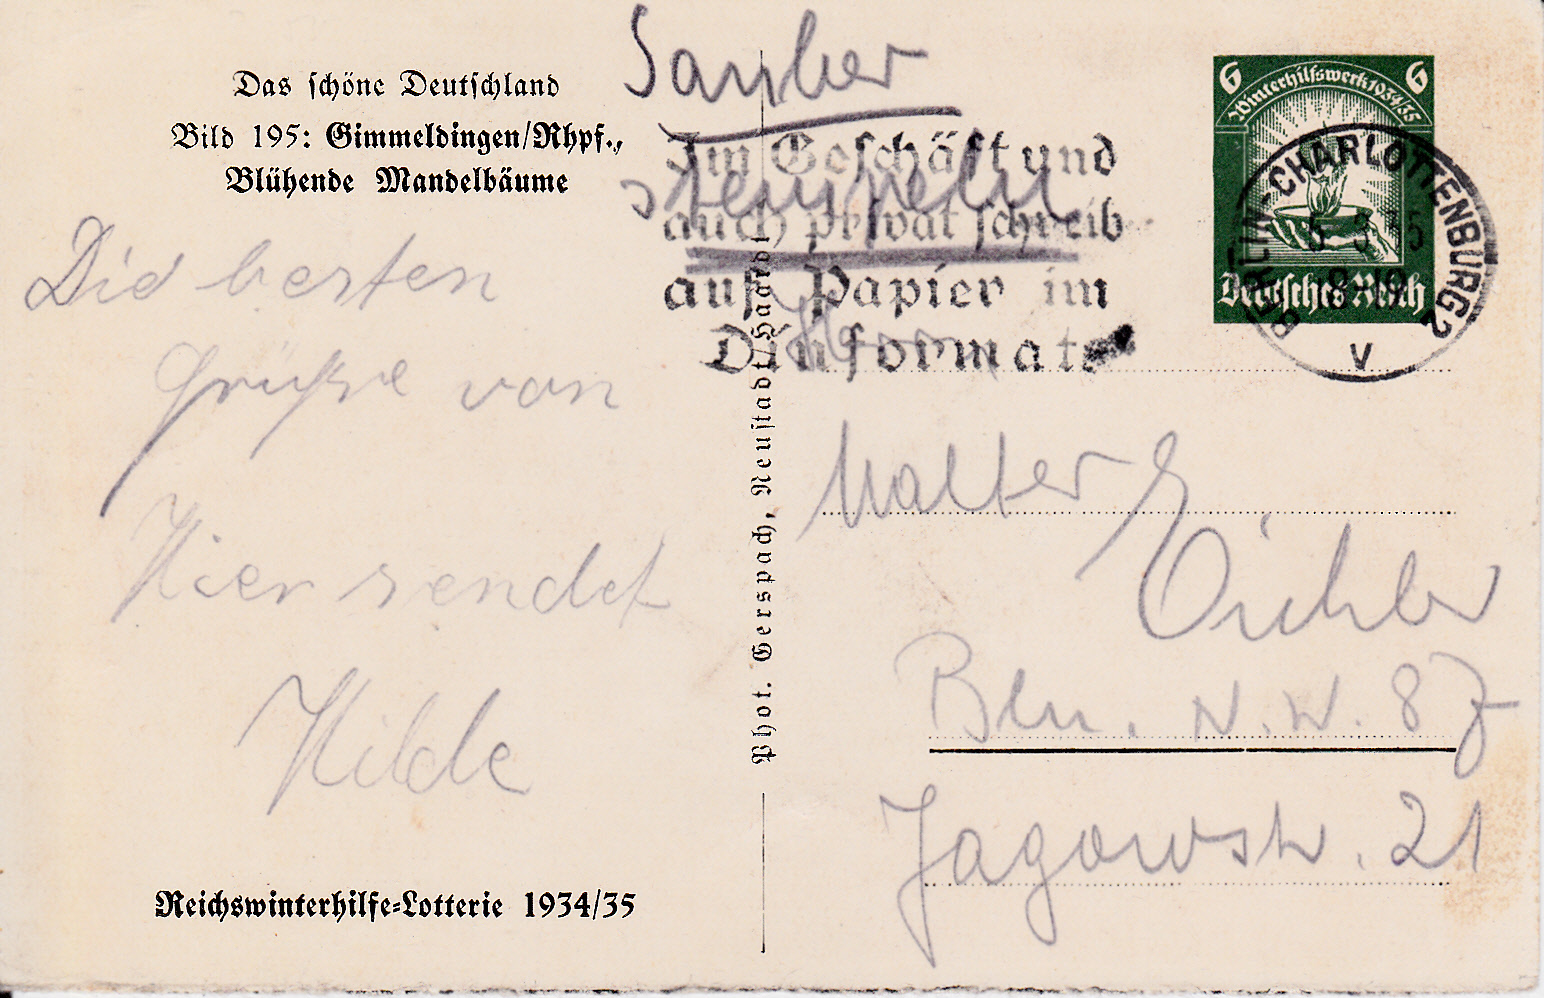 Das schöne Deutschland
Bild 195: Gimmeldingen/Rhpf.,
Blühende Mandelbäume
Die besten
Grüße von
Hier sendet
Hilde
Reichswinterhilfe-Lotterie 1934/35
Phot. Gerspach, Neustadt/Haardt
Sauber
stempeln
Im Geschäft und
auch privat schreib
auf Papier im
Dinformat
6 6
Winterhilfswerk 1934/35
Deutsches Reich
BERLIN-CHARLOTTENBURG 2
5 3 35
18-19
V
Herrn
Walter
Eichler
Bln. N.W. 87
Jagowstr. 21